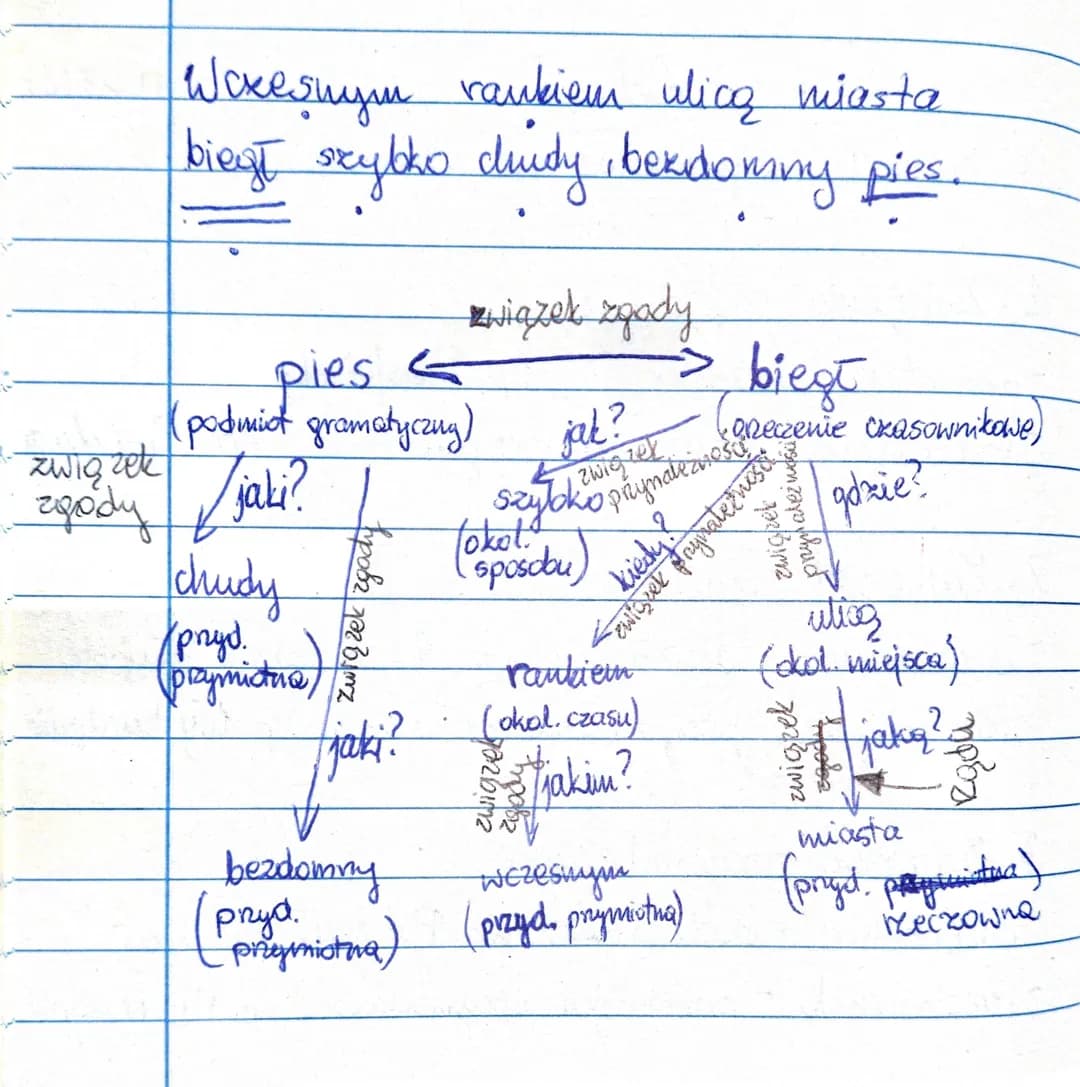 Wczesnym rankiem ulicą miasta
biegł szybko chudy, bezdomny pies.
związek zgody
pies biegł
(podmiot gramatyczny) (orzeczenie czasownikowe)
związek
zgody
jaki?
związek zgody
jak?
związek
przynależności
szybko
(okol.
sposobu)
kiedy?
związek przynależności
związek
przynależności
gdzie?
chudy
(przyd.
przymiotną)
jaki?
rankiem
(okol. czasu)
związek
zgody
jakim?
ulicą
(okol. miejsca)
związek
zgody
jaką?
rządu
bezdomny
(przyd.
przymiotną)
wczesnym
(przyd. przymiotną)
miasta
(przyd. przymiotną)
rzeczowną